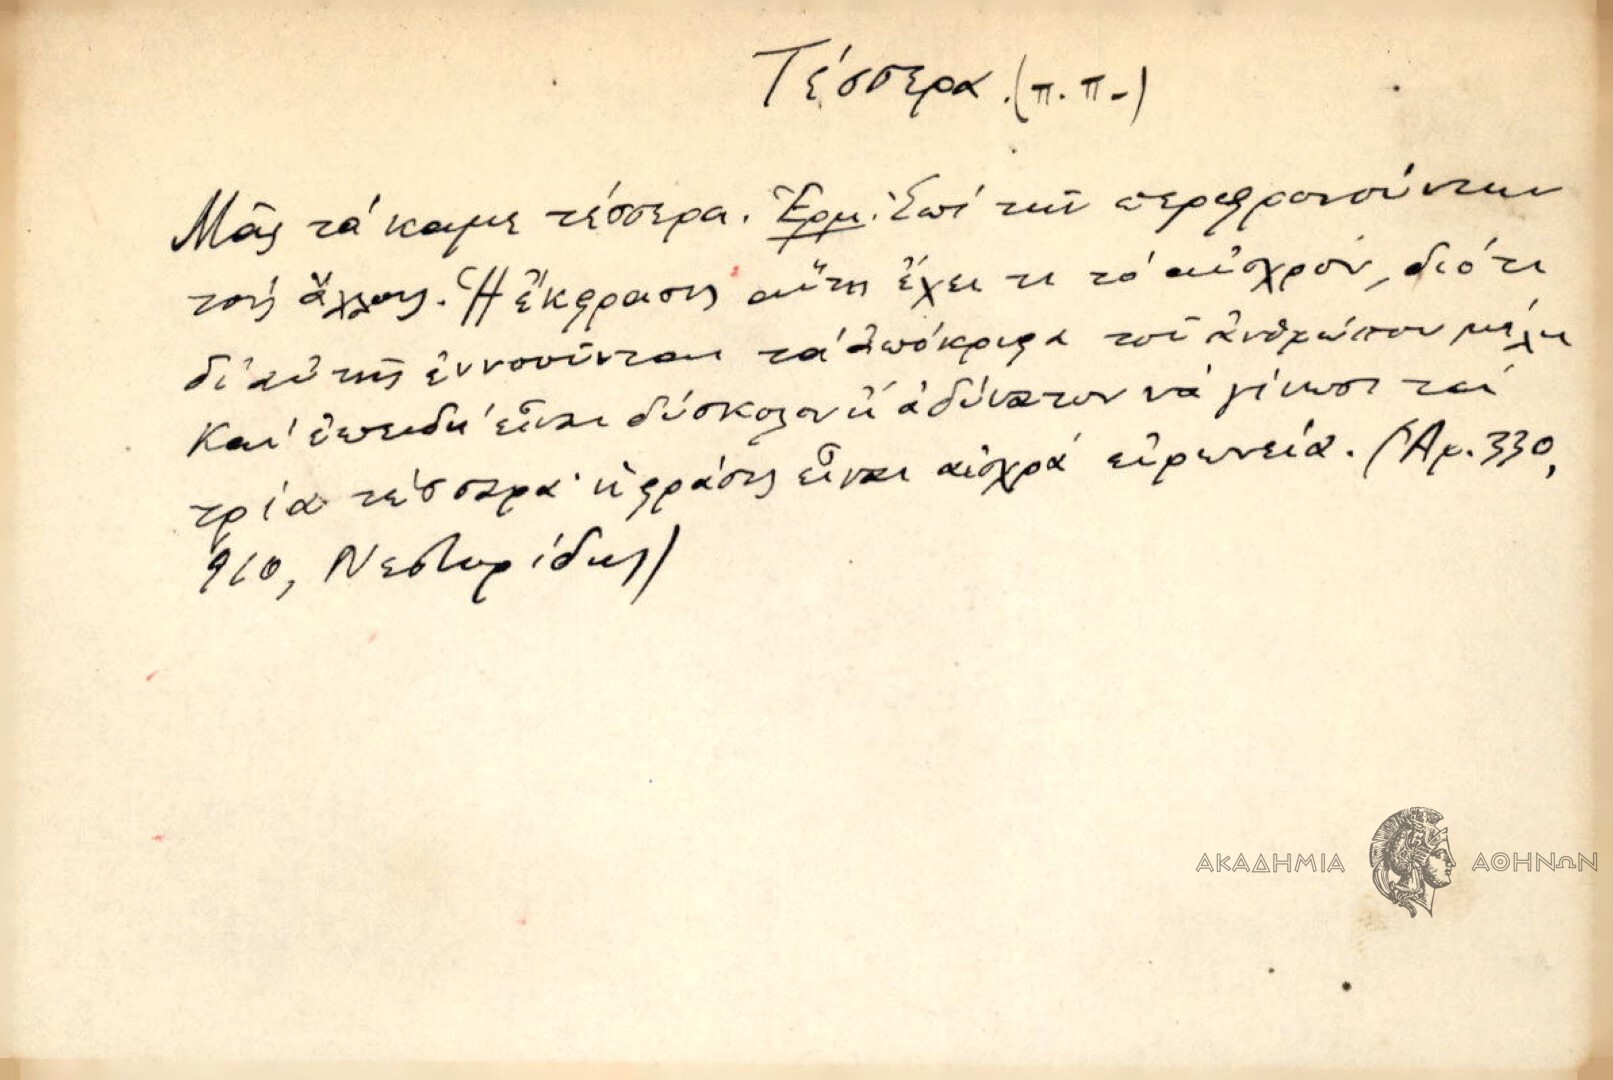 Τέσσερα. (π. π.)
Μᾶς τά καμε τέσσερα. Ἑρμ. Ἐπί τῶν περιφρονούντων
τούς ἄλλους. Ἡ ἔκφρασις αὕτη ἔχει τι τό αἰσχρόν, διότι
δι' αὐτῆς ἐννοοῦνται τά ἀπόκρυφα τοῦ ἀνθρώπου μέλη
Καί ἐπειδή εἶναι δύσκολον ἤ ἀδύνατον νά γίνωσι τά
τρία τέσσερα· ἡ φράσις εἶναι αἰσχρά εἰρωνεία. (Ἀρ. 330,
910, Νεστορίδης)
ΑΚΑΔΗΜΙΑ ΑΘΗΝΩΝ